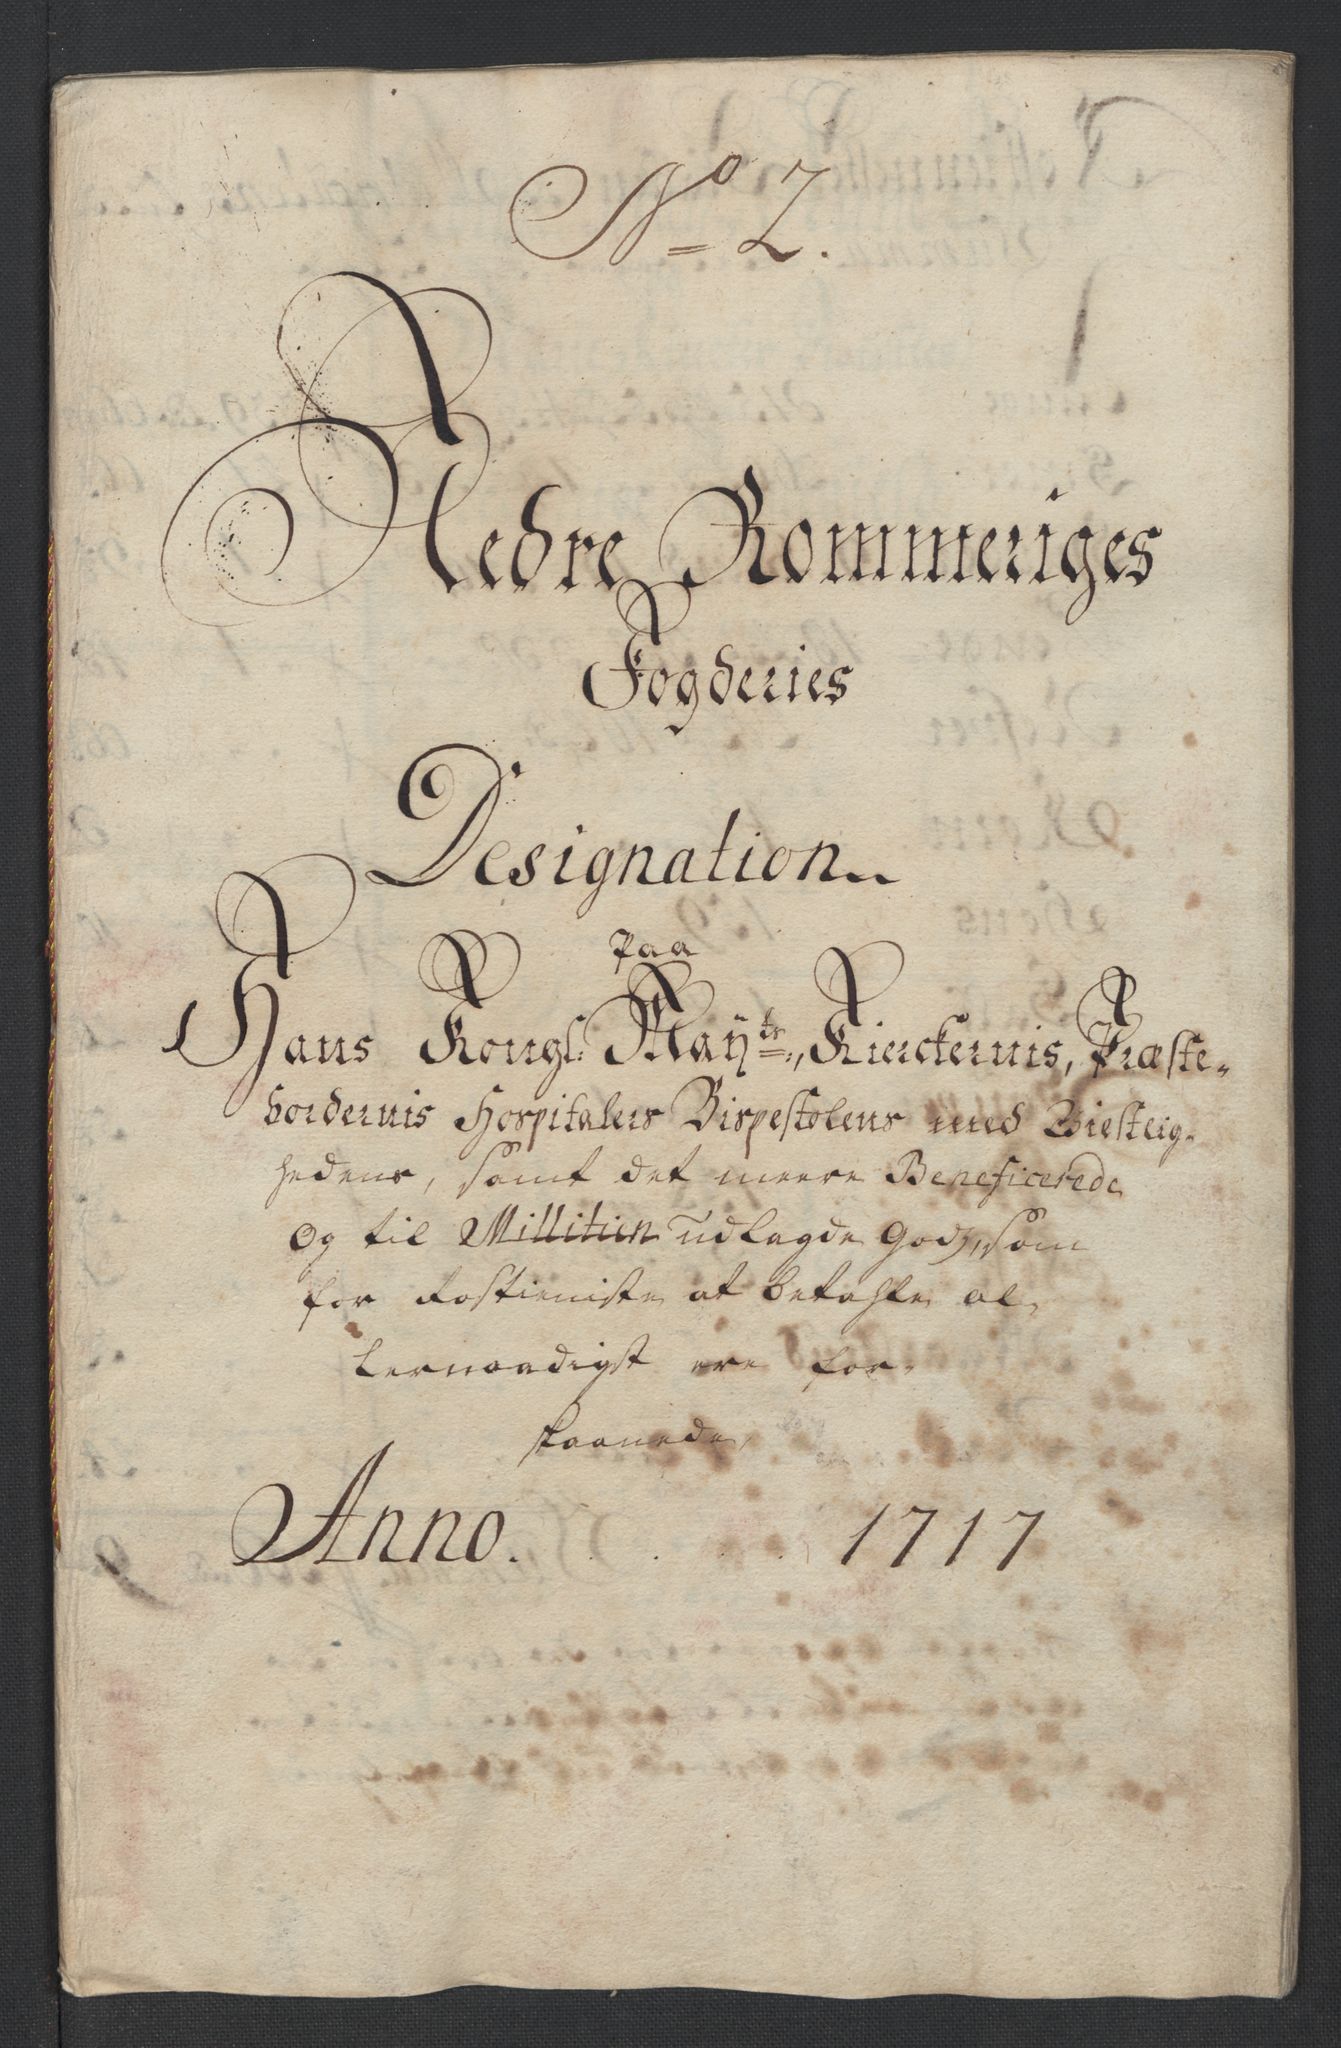 No 2.
Nedre Rommeriges
Fogderies
Designation
Paa
Hans Kongl: Mayts:, Kierckernis, Præste-
bordernis Hospitalers Bispestolens med Biesteig-
hedens, samt det meere Beneficerede
Og til Millitien udlagde Godz, som
for Rostieniste at betahle al-
lernaadigst ere for-
skaanede,
Anno. 1717